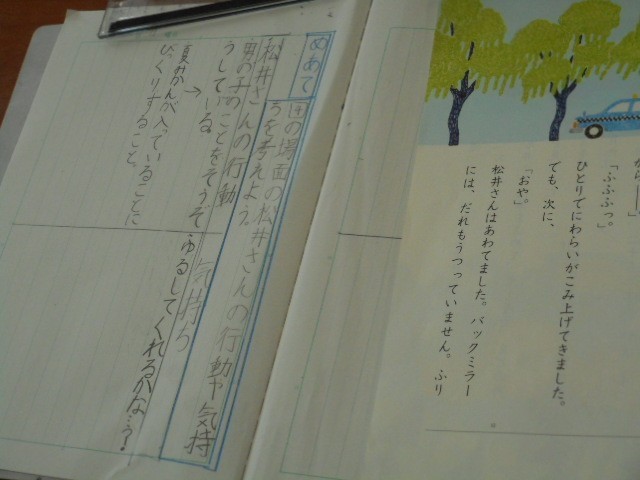 「ふふふっ。」
ひとりでにわらいがこみ上げてきました。
でも、次に、
「おや。」
松井さんはあわてました。バックミラー
には、だれもうつっていません。ふり
めあて
四の場面の松井さんの行動や気持
ちを考えよう。
松井さんの行動
気持ち
男の子のことをそうぞ
うしている
夏みかんが入っていることに
びっくりすること、
ゆるしてくれるかな…？